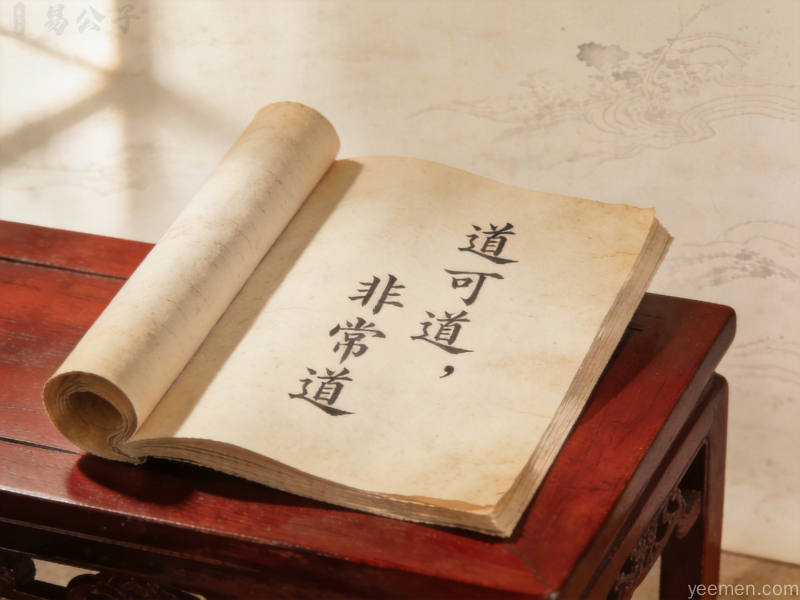 道可道，
非常道
易公子
yeemen.com